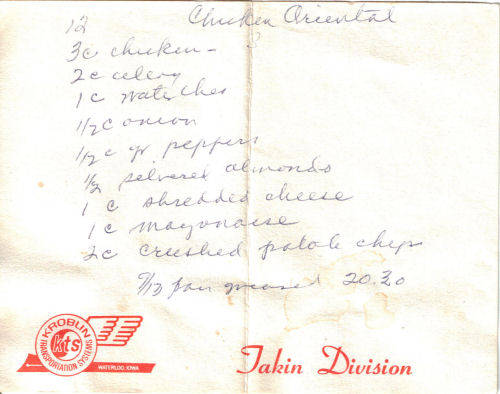 Chicken Oriental
12
8
3c chicken -
2c celery
1 c water ches
1/2 c onion
1/2 c gr. peppers
1/2 selvered almonds
1 c shredded cheese
1 c mayonaise
2c crushed potato chips
9/13 pan greased 20.30
KROBLIN
kts
TRANSPORTATION SYSTEMS
WATERLOO, IOWA
Takin Division